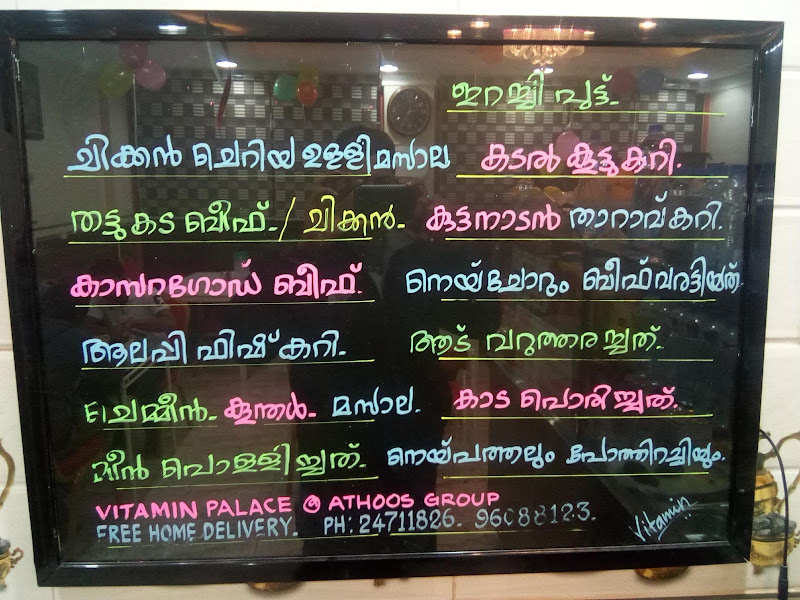 ഇറച്ചി പുട്ട്.
ചിക്കൻ ചെറിയ ഉള്ളി മസാല കടൽ കൂട്ടുകറി.
തട്ടുകട ബീഫ്. / ചിക്കൻ. കുട്ടനാടൻ താറാവ് കറി.
കാസറഗോഡ് ബീഫ്. നെയ്ചോറും ബീഫ് വരട്ടിയത്
ആലപ്പി ഫിഷ് കറി. ആട് വറുത്തരച്ചത്.
ചെമ്മീൻ. കൂന്തൾ. മസാല. കാട പൊരിച്ചത്.
മീൻ പൊള്ളിച്ചത്. നെയ്പത്തലും പോത്തിറച്ചിയും.
VITAMIN PALACE @ ATHOOS GROUP
FREE HOME DELIVERY. PH: 24711826. 96088123.
Vitamin